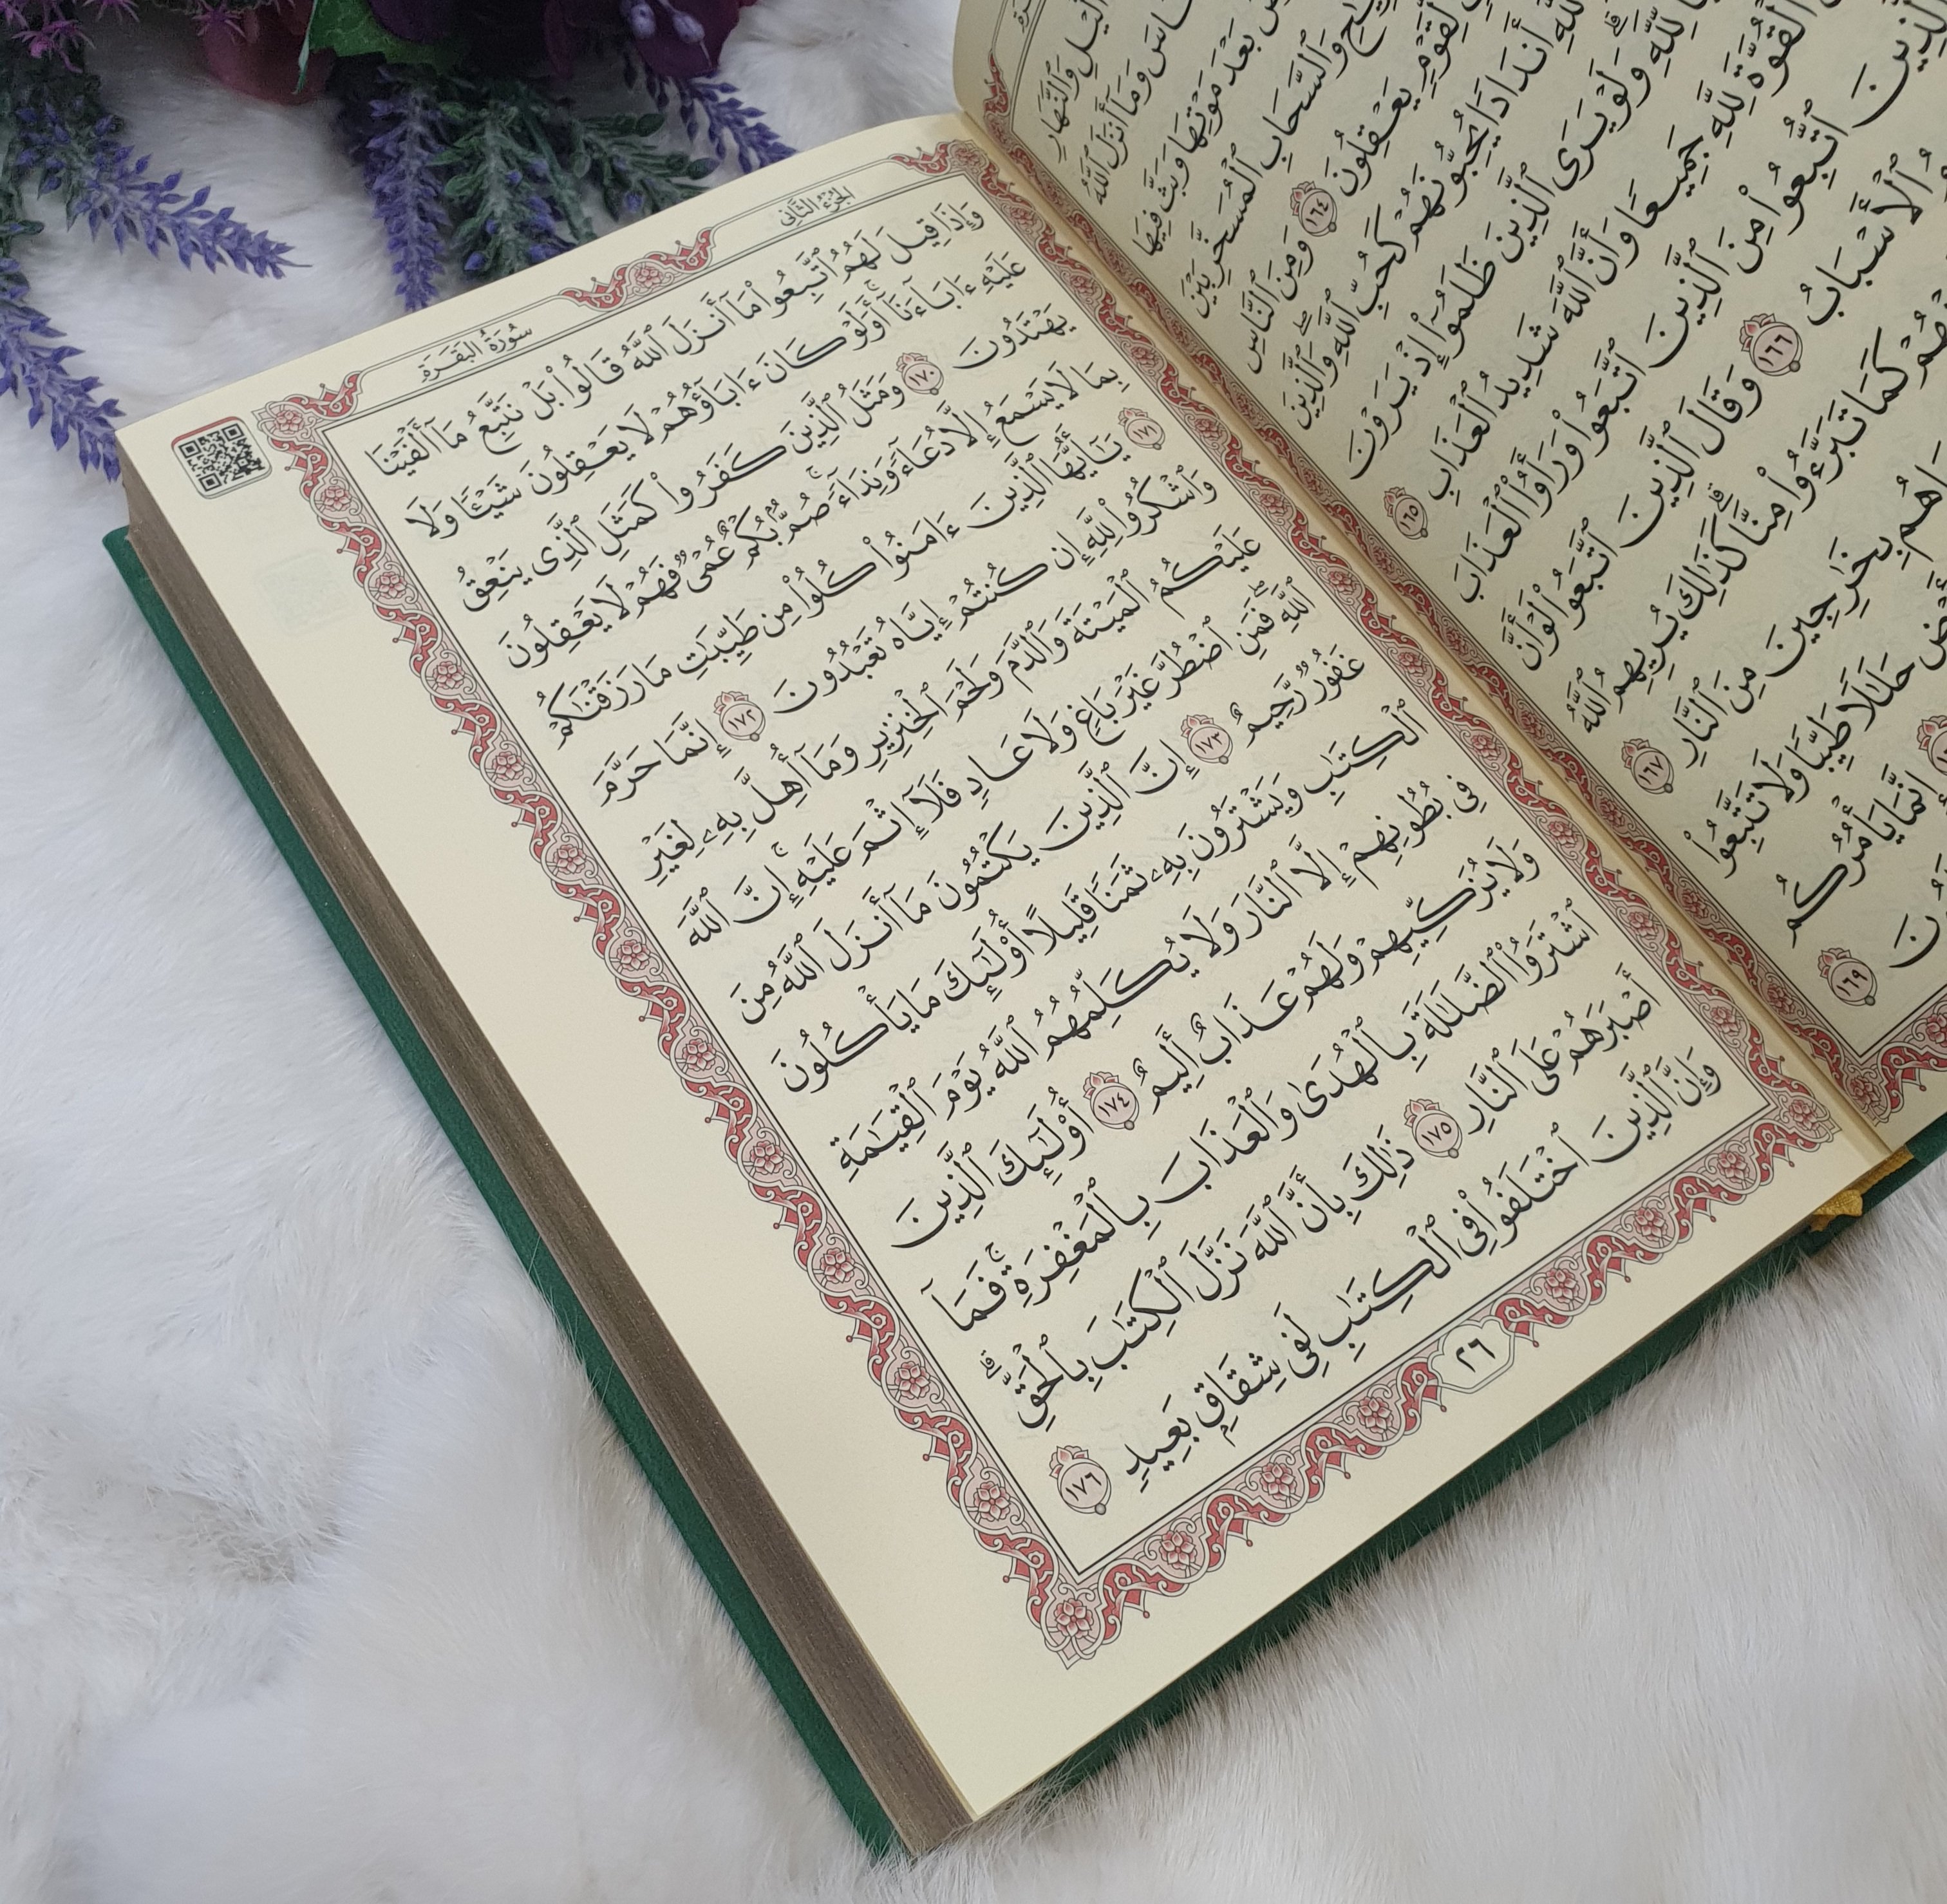 ٱلَّيۡلِ وَٱلنَّهَارِ
وَمَآ أَنزَلَ ٱللَّهُ
بَعۡدَ مَوۡتِهَا وَبَثَّ فِيهَا
وَٱلسَّحَابِ ٱلۡمُسَخَّرِ بَيۡنَ
لِّقَوۡمٖ يَعۡقِلُونَ ١٦٤ وَمِنَ ٱلنَّاسِ
أَندَادٗا يُحِبُّونَهُمۡ كَحُبِّ ٱللَّهِۖ وَٱلَّذِينَ
لِّلَّهِۗ وَلَوۡ يَرَى ٱلَّذِينَ ظَلَمُوٓاْ إِذۡ يَرَوۡنَ
ٱلۡقُوَّةَ لِلَّهِ جَمِيعٗا وَأَنَّ ٱللَّهَ شَدِيدُ ٱلۡعَذَابِ ١٦٥
ٱلَّذِينَ ٱتُّبِعُواْ مِنَ ٱلَّذِينَ ٱتَّبَعُواْ وَرَأَوُاْ ٱلۡعَذَابَ
ٱلۡأَسۡبَابُ ١٦٦ وَقَالَ ٱلَّذِينَ ٱتَّبَعُواْ لَوۡ أَنَّ
كَمَا تَبَرَّءُواْ مِنَّاۗ كَذَٰلِكَ يُرِيهِمُ ٱللَّهُ
بِخَٰرِجِينَ مِنَ ٱلنَّارِ ١٦٧
حَلَٰلٗا طَيِّبٗا وَلَا تَتَّبِعُواْ
إِنَّمَا يَأۡمُرُكُم
١٦٩
الجُزْءُ الثَّانِي
سُورَةُ البَقَرَةِ
وَإِذَا قِيلَ لَهُمُ ٱتَّبِعُواْ مَآ أَنزَلَ ٱللَّهُ قَالُواْ بَلۡ نَتَّبِعُ مَآ أَلۡفَيۡنَا
عَلَيۡهِ ءَابَآءَنَآۚ أَوَلَوۡ كَانَ ءَابَآؤُهُمۡ لَا يَعۡقِلُونَ شَيۡـٔٗا وَلَا
يَهۡتَدُونَ ١٧٠ وَمَثَلُ ٱلَّذِينَ كَفَرُواْ كَمَثَلِ ٱلَّذِي يَنۡعِقُ
بِمَا لَا يَسۡمَعُ إِلَّا دُعَآءٗ وَنِدَآءٗۚ صُمُّۢ بُكۡمٌ عُمۡيٞ فَهُمۡ لَا يَعۡقِلُونَ
١٧١ يَٰٓأَيُّهَا ٱلَّذِينَ ءَامَنُواْ كُلُواْ مِن طَيِّبَٰتِ مَا رَزَقۡنَٰكُمۡ
وَٱشۡكُرُواْ لِلَّهِ إِن كُنتُمۡ إِيَّاهُ تَعۡبُدُونَ ١٧٢ إِنَّمَا حَرَّمَ
عَلَيۡكُمُ ٱلۡمَيۡتَةَ وَٱلدَّمَ وَلَحۡمَ ٱلۡخِنزِيرِ وَمَآ أُهِلَّ بِهِۦ لِغَيۡرِ
ٱللَّهِۖ فَمَنِ ٱضۡطُرَّ غَيۡرَ بَاغٖ وَلَا عَادٖ فَلَآ إِثۡمَ عَلَيۡهِۚ إِنَّ ٱللَّهَ
غَفُورٞ رَّحِيمٌ ١٧٣ إِنَّ ٱلَّذِينَ يَكۡتُمُونَ مَآ أَنزَلَ ٱللَّهُ مِنَ
ٱلۡكِتَٰبِ وَيَشۡتَرُونَ بِهِۦ ثَمَنٗا قَلِيلًا أُوْلَٰٓئِكَ مَا يَأۡكُلُونَ
فِي بُطُونِهِمۡ إِلَّا ٱلنَّارَ وَلَا يُكَلِّمُهُمُ ٱللَّهُ يَوۡمَ ٱلۡقِيَٰمَةِ
وَلَا يُزَكِّيهِمۡ وَلَهُمۡ عَذَابٌ أَلِيمٌ ١٧٤ أُوْلَٰٓئِكَ ٱلَّذِينَ
ٱشۡتَرَوُاْ ٱلضَّلَٰلَةَ بِٱلۡهُدَىٰ وَٱلۡعَذَابَ بِٱلۡمَغۡفِرَةِۚ فَمَآ
أَصۡبَرَهُمۡ عَلَى ٱلنَّارِ ١٧٥ ذَٰلِكَ بِأَنَّ ٱللَّهَ نَزَّلَ ٱلۡكِتَٰبَ بِٱلۡحَقِّۗ
وَإِنَّ ٱلَّذِينَ ٱخۡتَلَفُواْ فِي ٱلۡكِتَٰبِ لَفِي شِقَاقِۭ بَعِيدٖ ١٧٦
٢٦